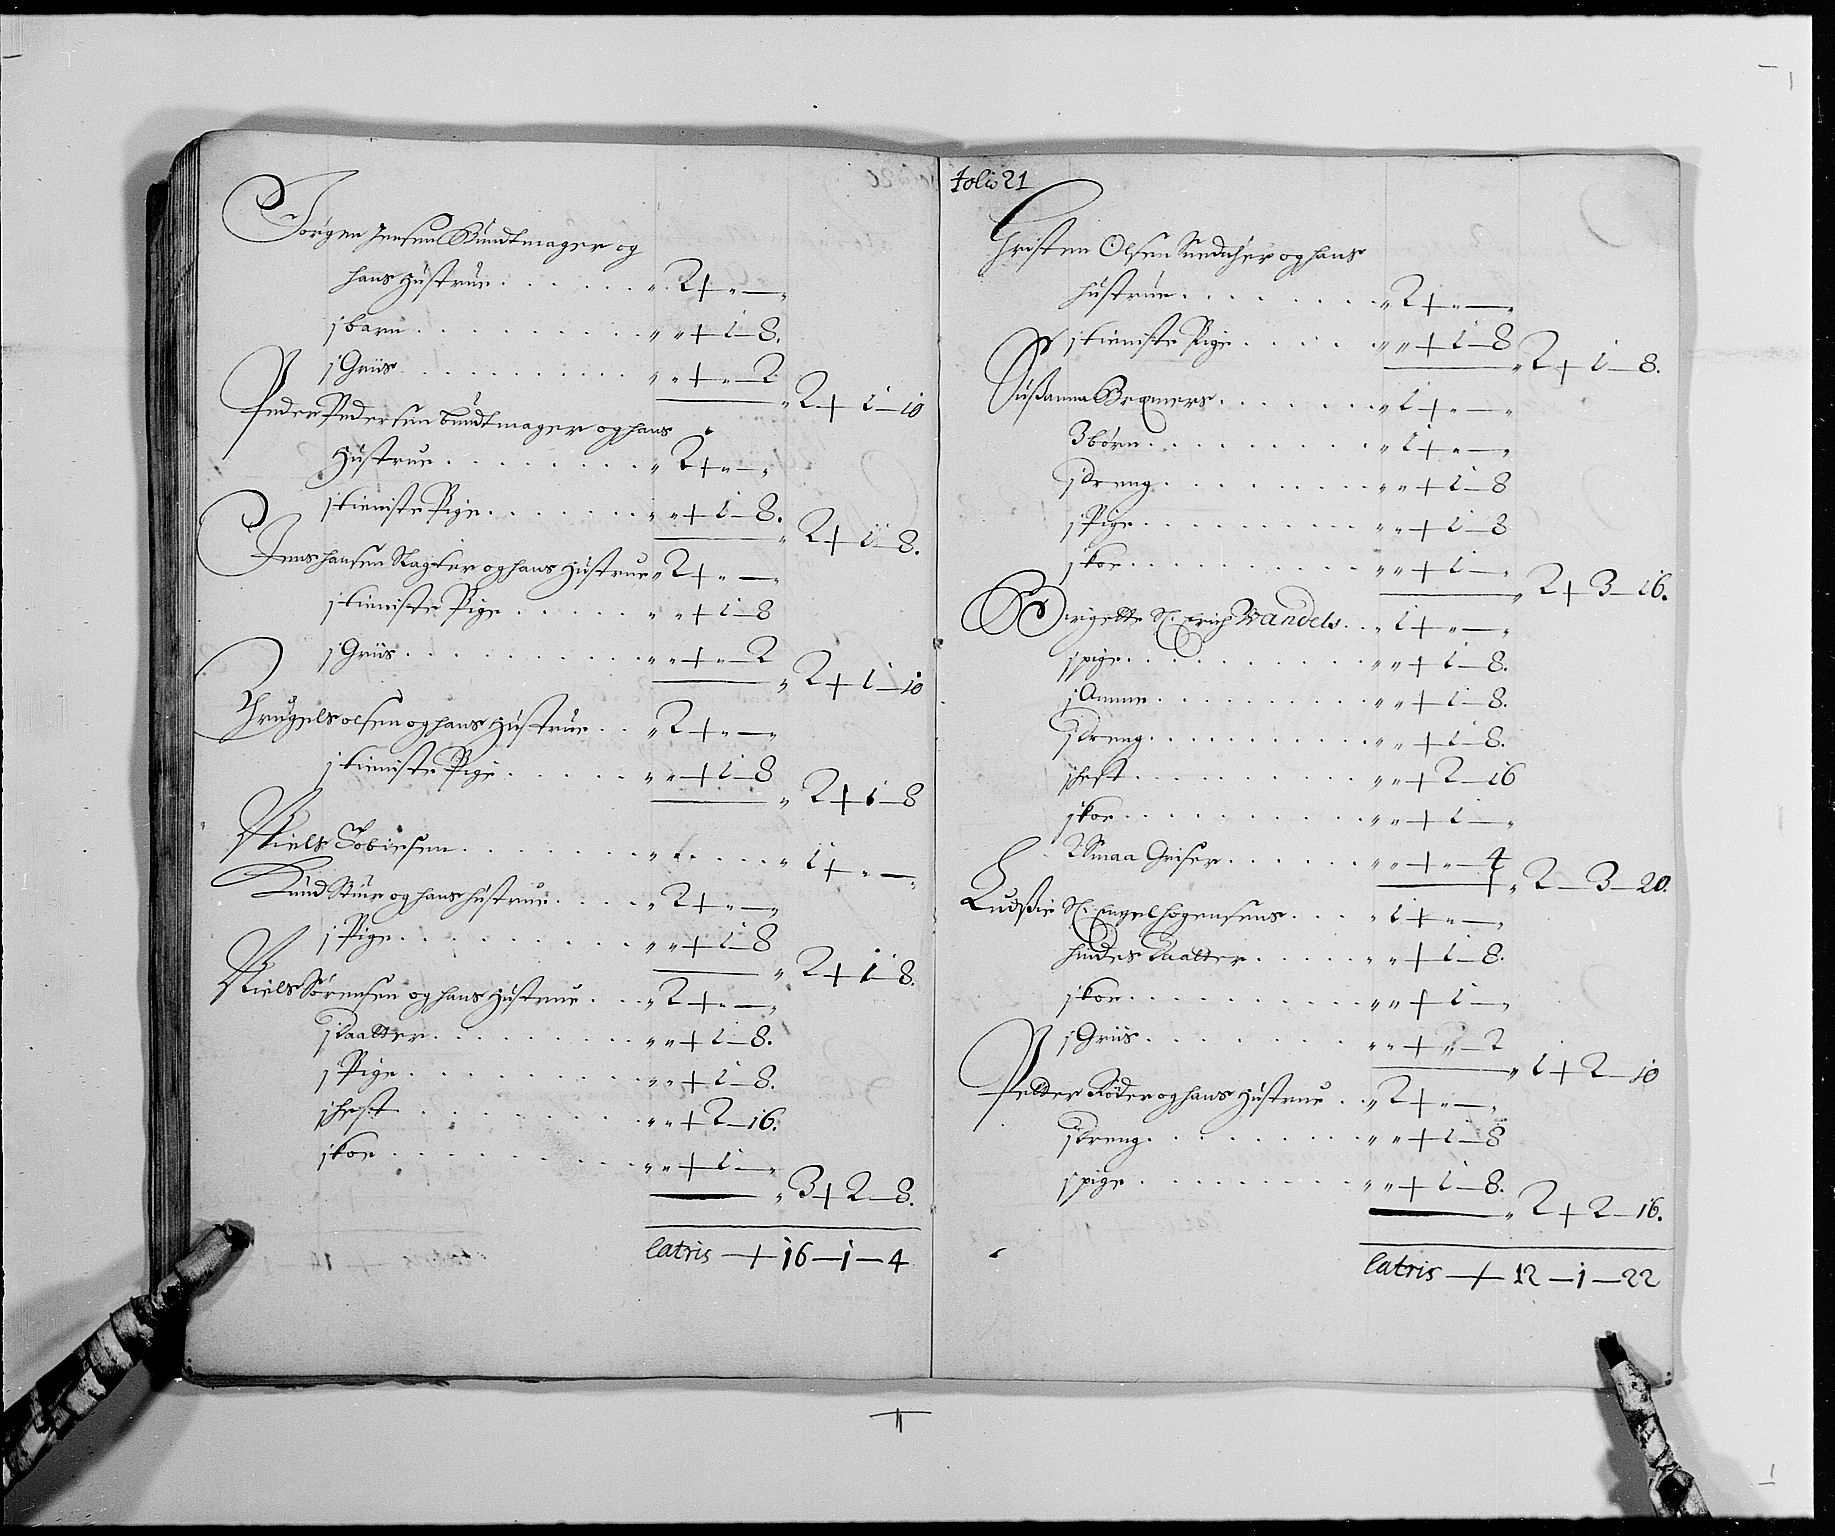 Jørgen Jensen Bundtmager og
hans Hustrue . . . . . . „ 2 + „ — „
j barn . . . . . . . . „ „ + 1 — 8.
j Griis . . . . . . . . „ „ + „ — 2
„ 2 + 1 — 10
Peder Pedersen bundtmager og hans
Hustrue . . . . . . . „ 2 + „ — „
j tieniste Pige . . . . . . „ „ + 1 — 8.
„ 2 + 1 — 8.
Jens hansen Slagter og hans Hustrue „ 2 + „ — „
j tieniste Pige . . . . . „ „ + 1 — 8
j Griis . . . . . . . . „ „ + „ — 2
„ 2 + 1 — 10
Thrugels olsen og hans Hustrue . . „ 2 + „ — „
j tieniste Pige . . . . . „ „ + 1 — 8
„ 2 + 1 — 8
Niels Tobiesen . . . . . . „ . . . . „ 1 + „ — „
Knud Stur og hans hustrue . . . . „ 2 + „ — „
j Pige . . . . . . . . „ „ + 1 — 8
„ 2 + 1 — 8.
Niels Sørensen og hans Hustrue . . . „ 2 + „ — „
j daatter . . . . . . . . „ „ + 1 — 8.
j Pige . . . . . . . . . „ „ + 1 — 8.
j hest . . . . . . . . . „ „ + 2 — 16.
j koe . . . . . . . . . „ „ + 1 — „
„ 3 + 2 — 8.
latris — + 16 — 1 — 4
folio 21
Christen Olsen og hans
hustrue . . . . . . . . „ 2 + „ — „
j tieniste Pige . . . . . „ „ + 1 — 8
„ 2 + 1 — 8.
Sußanna Bremers . . . . . . „ 1 + „ — „
3 børn . . . . . . . . „ 1 + „ — „
j dreng . . . . . . . . „ „ + 1 — 8
j Pige . . . . . . . . . „ „ + 1 — 8
j koe . . . . . . . . . „ „ + 1 — „
„ 2 + 3 — 16.
Birgette Sl. Erich Wandels . . „ 1 + „ — „
j pige . . . . . . . . . „ „ + 1 — 8.
j Amme . . . . . . . . „ „ + 1 — 8.
j dreng . . . . . . . . „ „ + 1 — 8.
j hest . . . . . . . . . „ „ + 2 — 16
j koe . . . . . . . . . „ „ + 1 — „
2 Smaa Griser . . . . . . „ „ + „ — 4
„ 2 — 3 — 20.
Ludßie Sl. Engelhogensens . . . „ 1 + „ — „
hindes daatter . . . . . „ „ + 1 — 8.
j koe . . . . . . . . . „ „ + 1 — „
j Griis . . . . . . . . „ „ + „ — 2
„ 1 + 2 — 10
Petter Röder og hans Hustrue . . „ 2 + „ — „
j dreng . . . . . . . . „ „ + 1 — 8
j pige . . . . . . . . . „ „ + 1 — 8.
„ 2 + 2 — 16.
latris — + 12 — 1 — 22